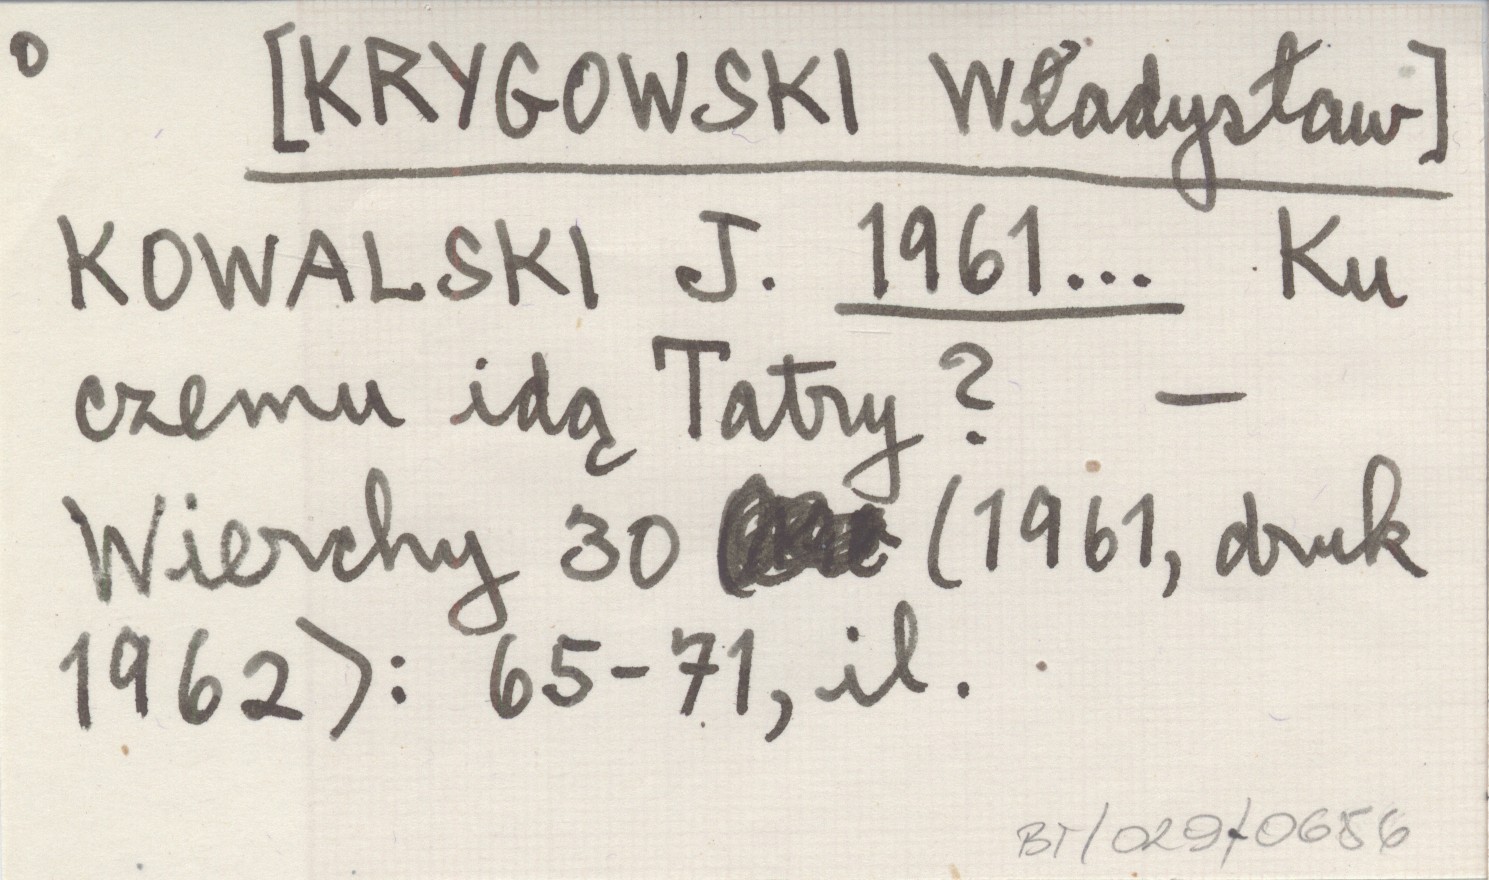 0 [KRYGOWSKI Władysław]
KOWALSKI J. 1961... Ku
czemu idą Tatry? —
Wierchy 30 (1961, druk
1962): 65-71, il.
BT/029/0656